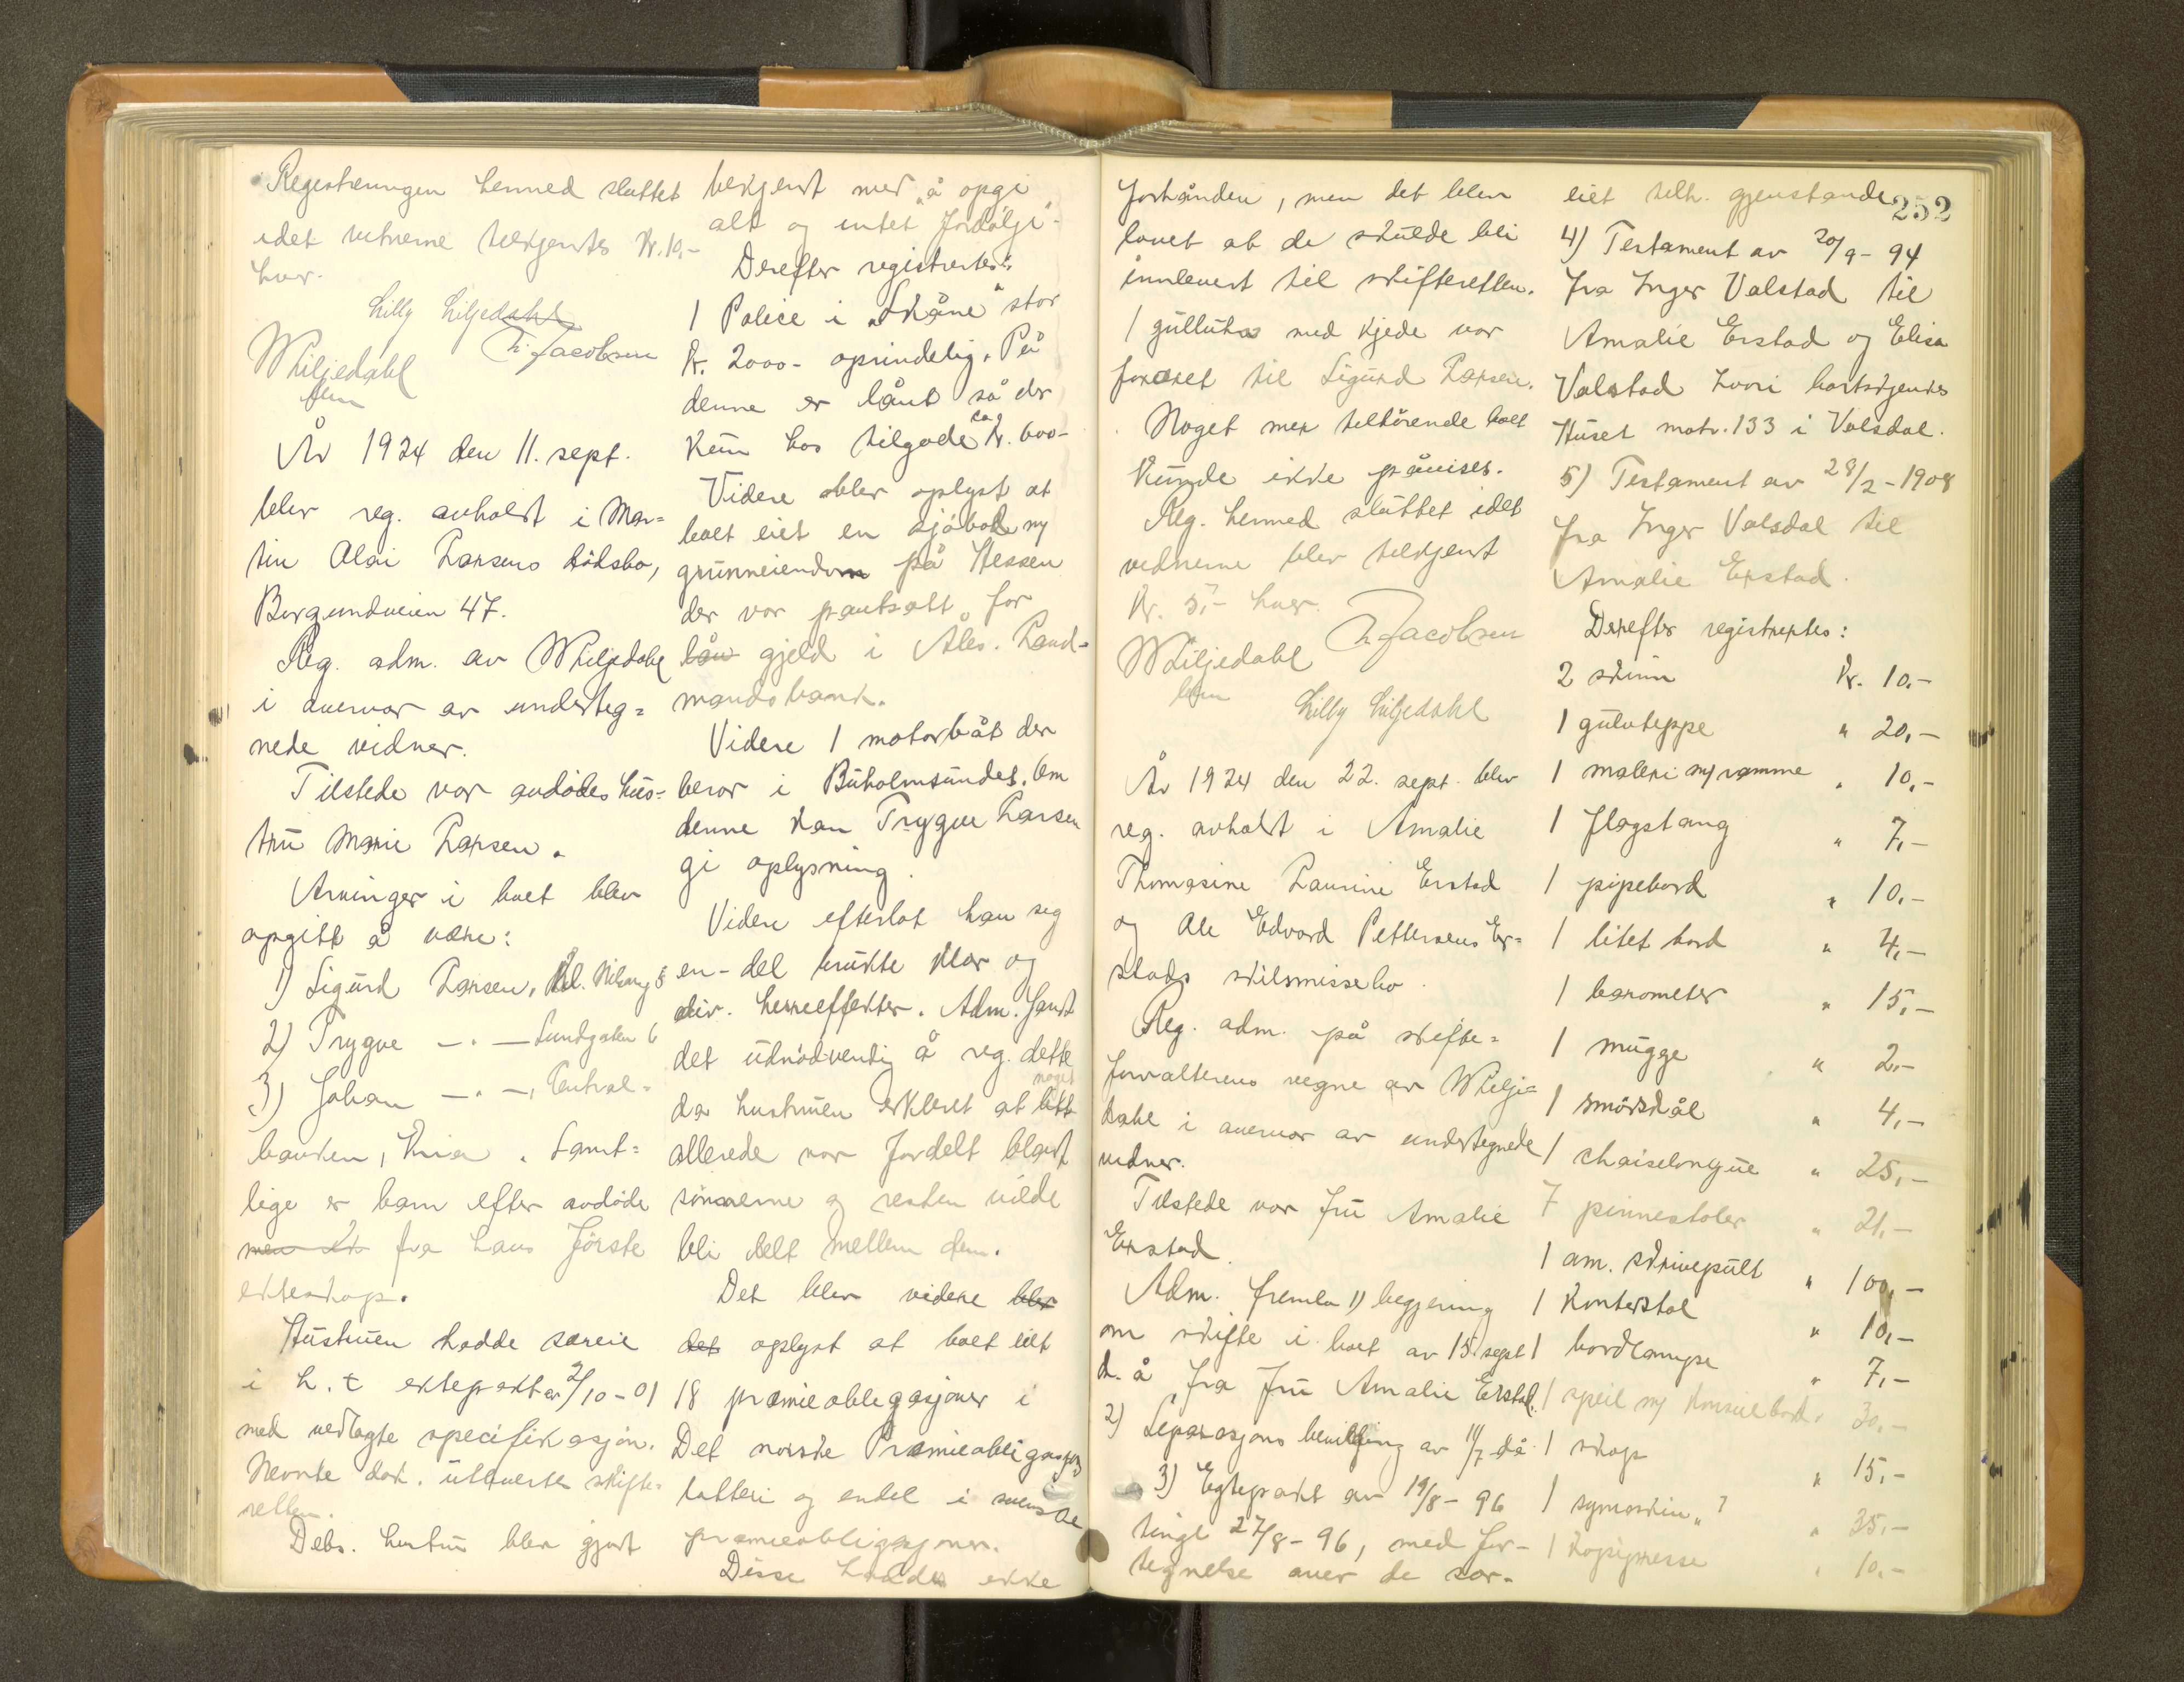 Registreringen hermed sluttet
idet vitnerne tilkjentes Kr. 10,-
hver.
Lilly Liljedahl
Th. Jacobsen
WLiljedahl
År 1924 den 11. sept.
blev reg. avholdt i Mar=
tin Olai Larsens dödsbo,
Borgundveien 47.
Reg. adm. av WLiljedahl
i overvær av underteg=
nede vidner.
Tilstede var avdödes hus=
tru Marie Larsen.
Arvinger i boet blev
opgitt å være:
1) Sigurd Larsen,
2) Trygve —"— Lundgaten 6
3) Johan —"—, Central=
banken, Kria. Samt=
lige er barn efter avdöde
men fra hans förste
ekteskap.
Hustruen hadde særeie
i h. t. ektepakt av 2/10-01
med vedlagte specifikasjon.
Nevnte dok. utleverte skifte-
retten.
Debs. hustru blev gjort
bekjent med å opgi
alt og intet fordölge.
Derefter registrertes:
1 Police i "Skåne" stor
kr. 2000- oprindelig. På
denne er lånt så der
kun hos tilgode ca kr. 600-
Videre blev oplyst at
boet eiet en sjöbod m/
grunneiendom på Hessen
der var pantsatt for
lån gjeld i Åles. Land-
mandsbank.
Videre 1 motorbåt der
beror i Buholmsundet. Om
denne kan Trygve Larsen
gi oplysning.
Videre efterlot han seg
en-del brukte klær og
div. herreeffekter. Adm. fandt
det unödvendig å reg. dette
da hustruen erklæret at litt noget
allerede var fordelt blandt
sönnerne og resten vilde
bli delt mellem dem.
Det blev videre blev
det oplyst at boet eiet
18 præmieobligasjoner i
Det norske Præmieobligasjons
lotteri og endel i svenske
præmieobligasjoner.
Disse hadde ikke
forhånden, men det blev
lovet at de skulde bli
innlevert til skifteretten.
1 gullur med kjede var
foræret til Sigurd Larsen.
Noget mer tilhörende boet
kunde ikke påvises.
Reg. hermed sluttet idet
vidnerne blev tilkjent
Kr. 5,- hver.
Th. Jacobsen
WLiljedahl
Lilly Liljedahl
År 1924 den 22. sept. blev
reg. avholdt i Amalie
Thomasine Laurine Erstad
og Ole Edvard Pettersens Er=
stads skilsmissebo.
Reg. adm. på skifte=
forvalterens vegne av WLilje=
dahl i overvær av undertegnede
vidner.
Tilstede var fru Amalie
Erstad.
Adm. fremla 1) begjæring
om skifte i boet av 15. sept
d. å fra fru Amalie Erstad.
2) Separasjons bevilling av 11/7 då.
3) Egtepakt av 19/8-96
tingl 27/8-96, med for-
tegnelse over de sær-
252
eiet tilh. gjenstande
4) Testament av 20/9-94
fra Inger Valstad til
Amalie Erstad og Elisa
Valstad hvori bortskjenkes
Huset matr. 133 i Volsdal.
5) Testament av 28/2-1908
fra Inger Volsdal til
Amalie Erstad.
Derefter registrertes:
2 skinn Kr. 10,-
1 gulvteppe " 20,-
1 maleri m/ramme " 10,-
1 flagstang " 7,-
1 pipebord " 10,-
1 litet bord " 4,-
1 barometer " 15,-
1 mugge " 2,-
1 smörskål " 4,-
1 chaiselongue " 25,-
7 pinnestoler " 21,-
1 am. skrivepult " 100,-
1 Kontorstol " 10,-
1 bordlampe " 7,-
1 speil m/ konsulbord " 30,-
1 skap " 15,-
1 symaskin " ? " 35,-
1 kopipresse " 10,-